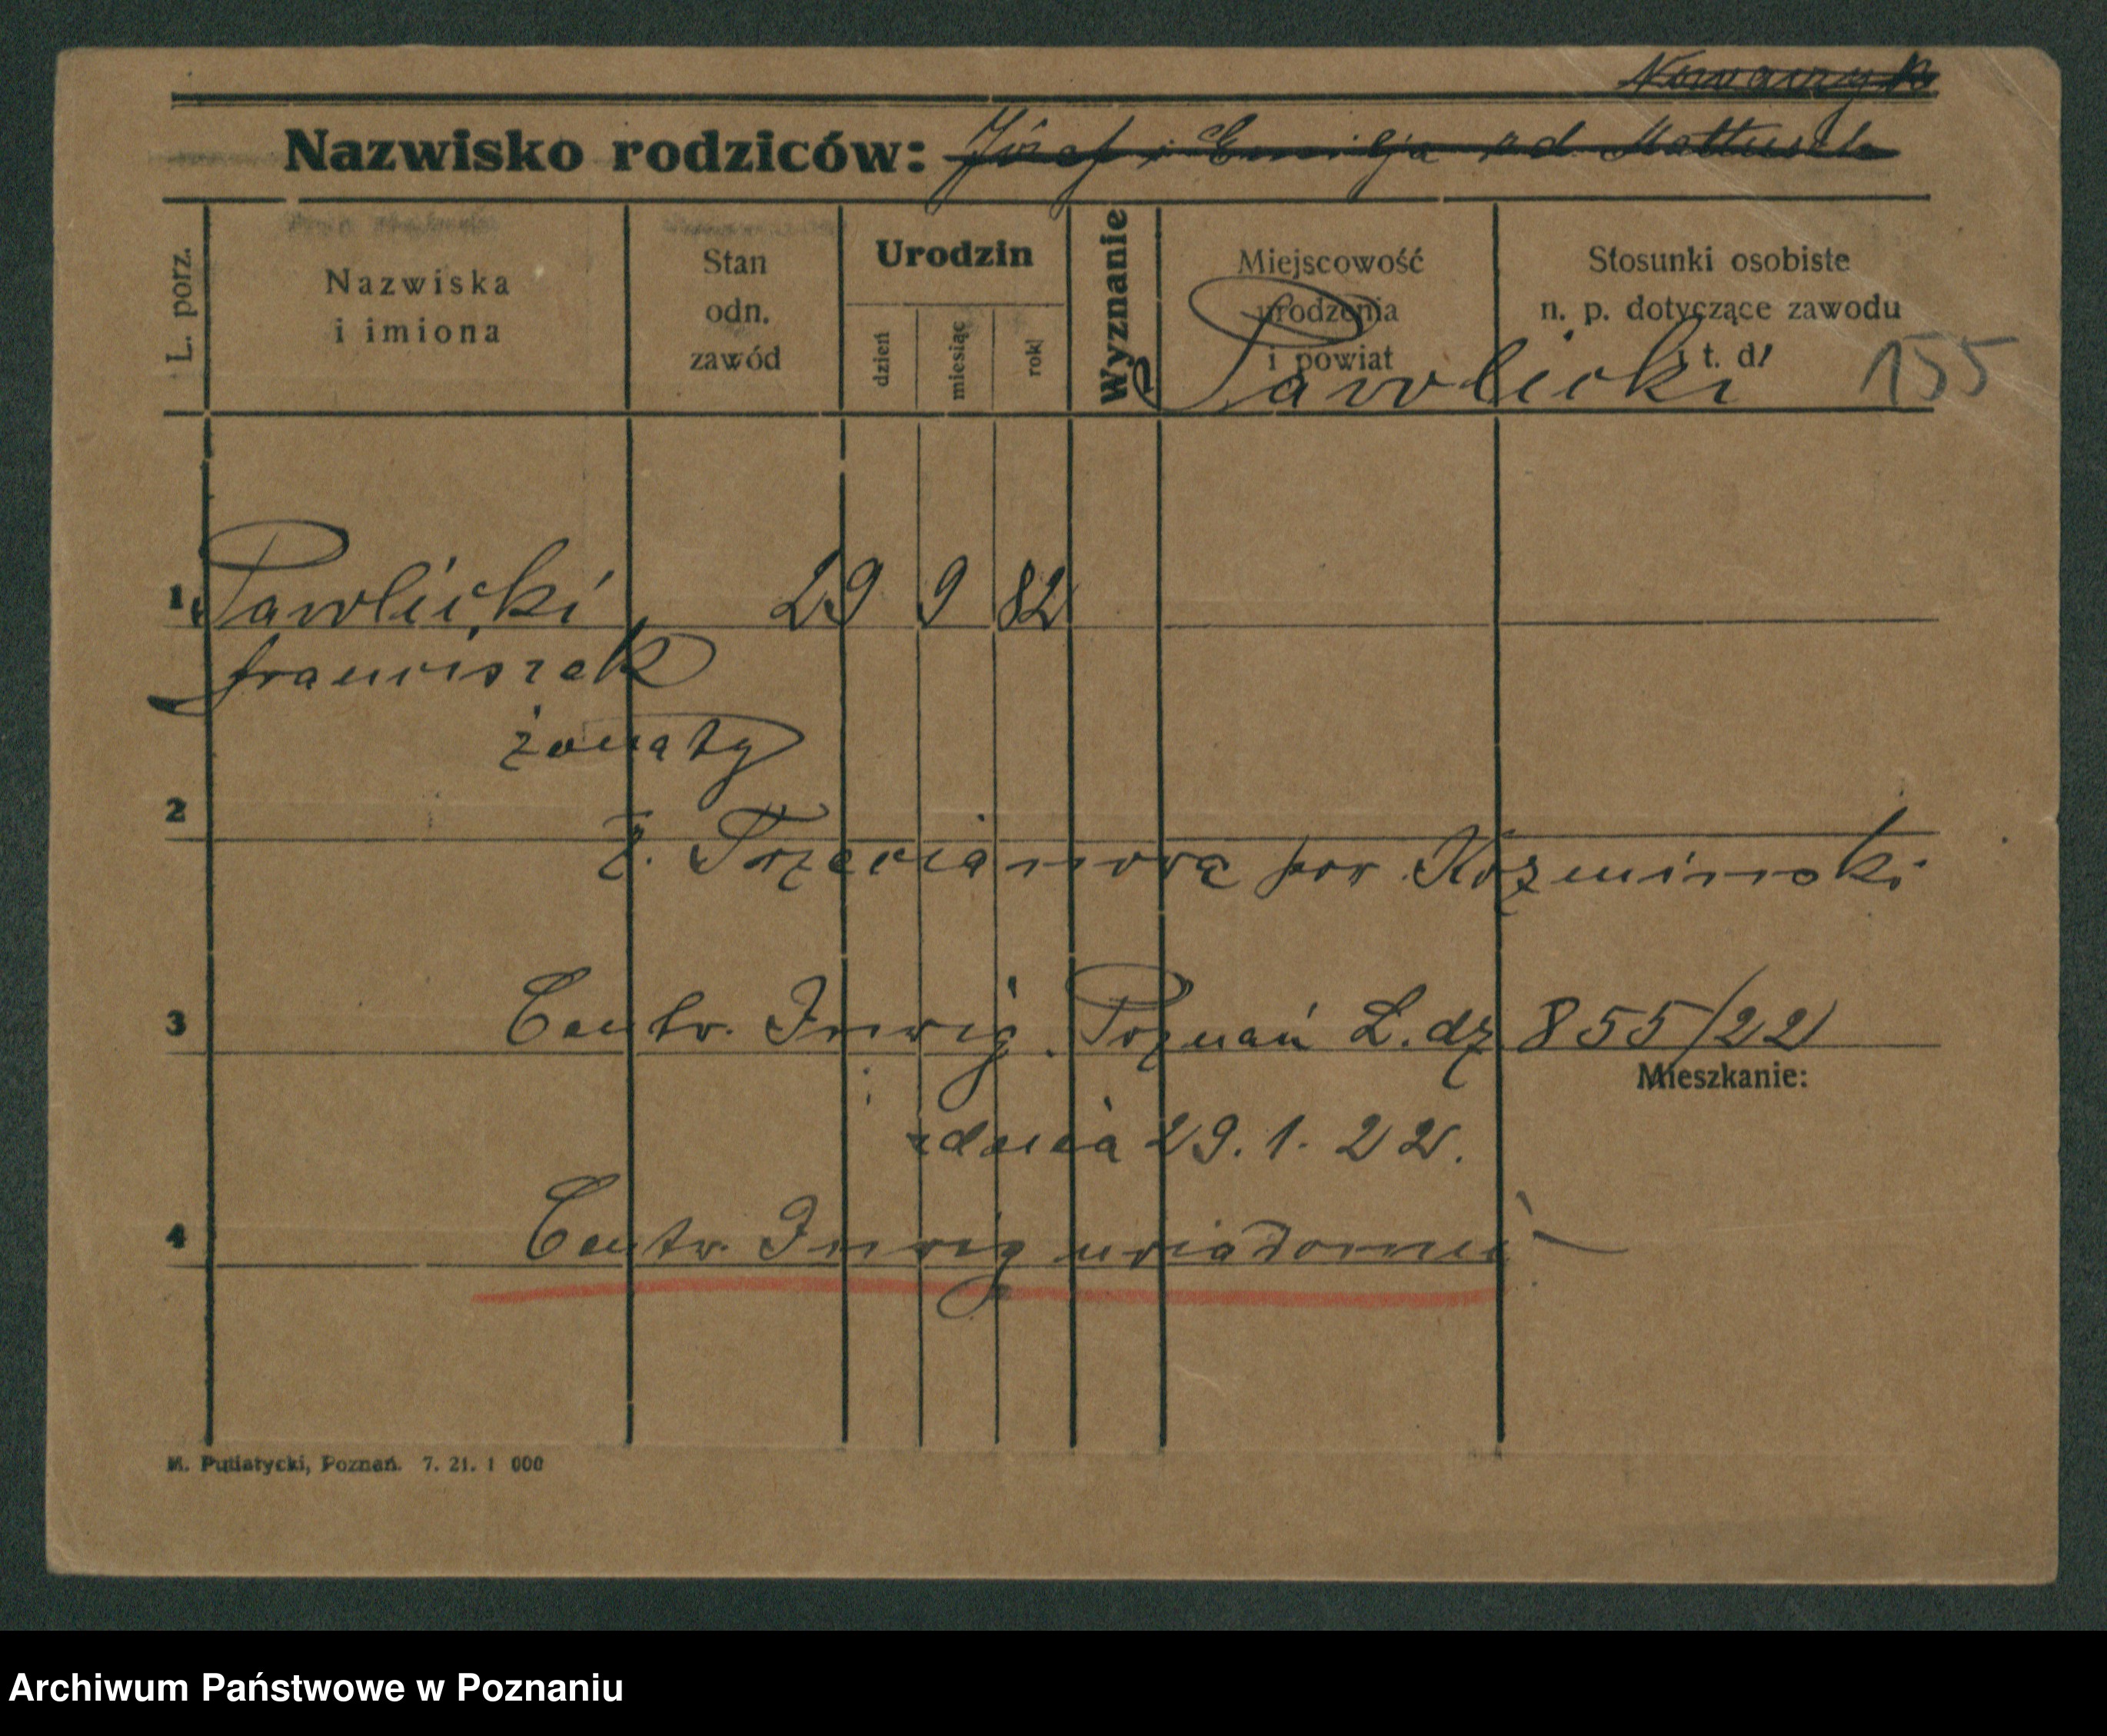 Nowaczyk
Nazwisko rodziców: Józef i Emilja zd. Mattusch
L. porz.
Nazwiska
i imiona
Stan
odn.
zawód
Urodzin
dzień
miesiąc
rok
Wyznanie
Miejscowość
urodzenia
i powiat
Stosunki osobiste
n. p. dotyczące zawodu
i t. d.
Pawlicki 155
1 Pawlicki 29 9 82
Franciszek
żonaty
2
z. Trzecianowa pow. Kozminski
3 Centr. Inwig. Poznań L. dz 855/22
Mieszkanie:
z dnia 29. 1. 22.
4 Centr. Inwig uwiadomić
M. Putiatycki, Poznań. 7. 21. 1 000
Archiwum Państwowe w Poznaniu